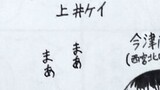 上井ケイ
まあ
まあ
今津
(西宮北